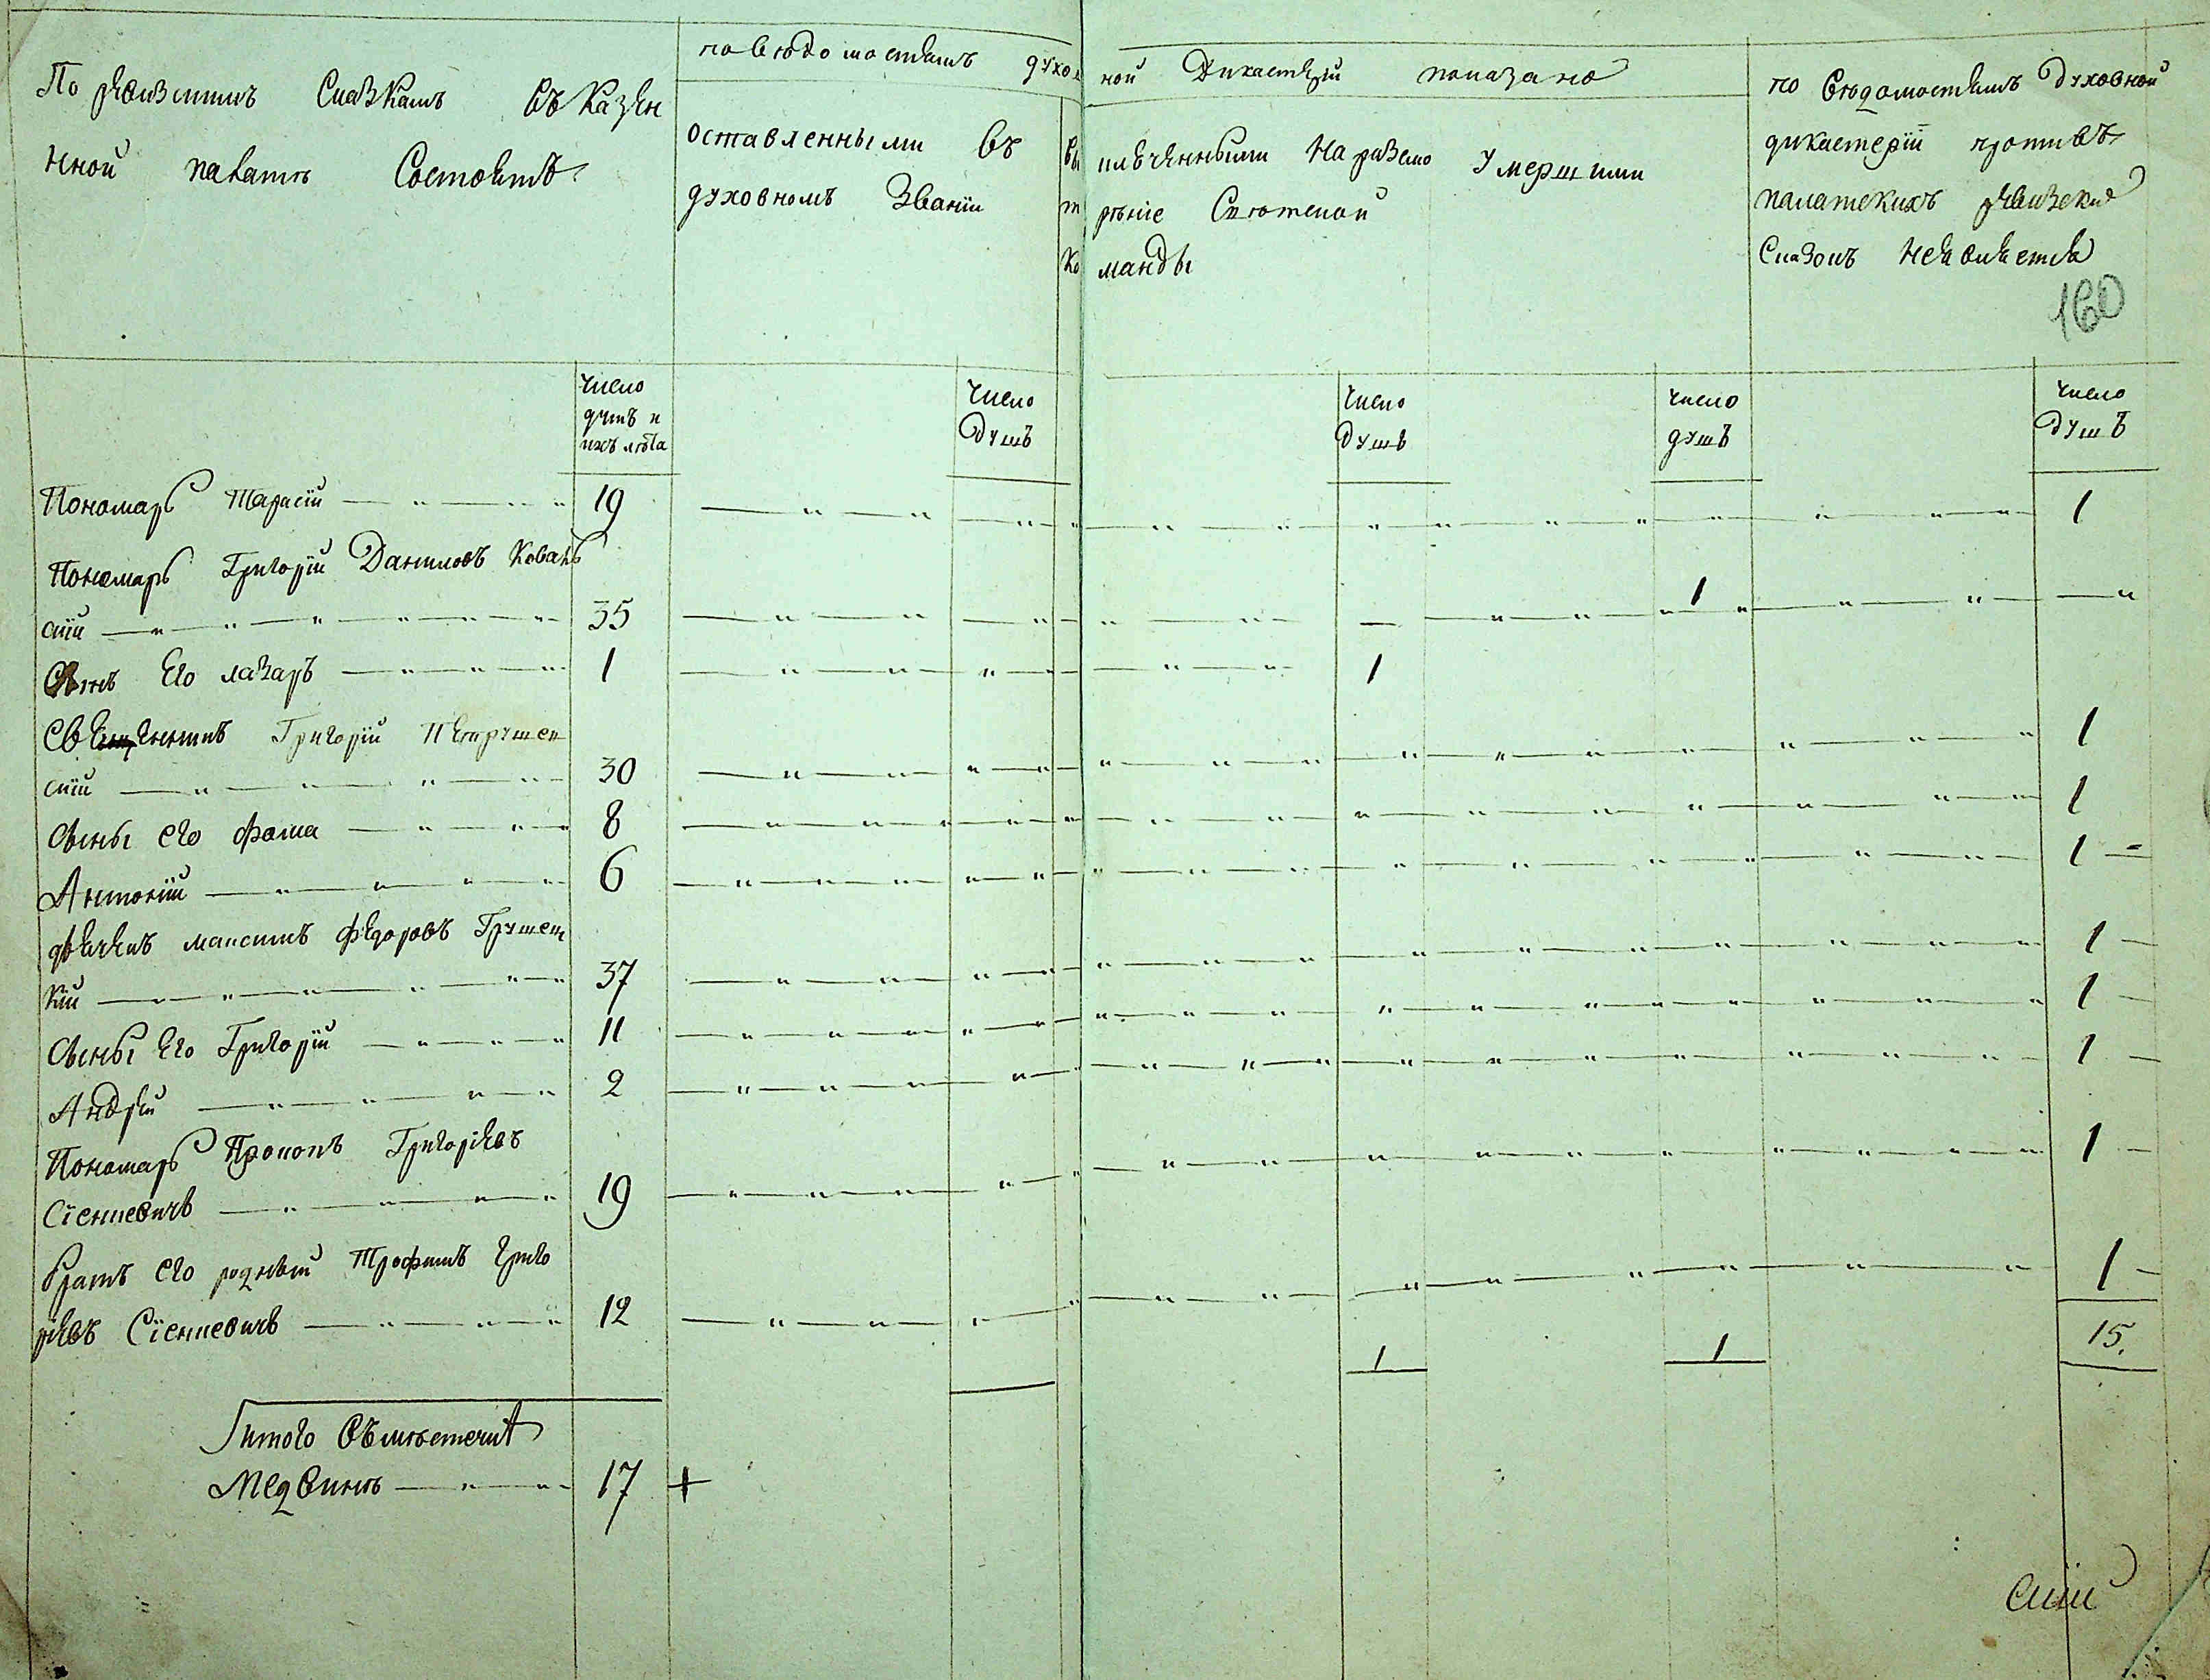 По ревизскимъ Сказкамъ въ Казен
нной палатѣ Состоитъ
по вѣдомостямъ духов
ной Дикастерїи показано
оставленными въ
духовномъ Званїи
вы
т
ко
ключенными На разсмо
рѣнїе Свѣтской
манды
Умершими
по Вѣдомостямъ Духовной
дикастерїи противъ
палатскихъ ревизскихъ
Сказокъ Неявляется
160
Число
душъ и
ихъ лѣта
Число
Душъ
Число
душъ
число
душъ
число
душъ
Пономарь Тарасїй 19 1
Пономарь Григорїй Даниловъ Коваль
скїй 35 1
Сынъ Его лазарь 1 1
Священникъ Григорїй Петрушев
скїй 30 1
Сыны его Фома 8 1
Антонїй 6 1
дьячекъ максимъ Федоровъ Грушец
кїй 37 1
Сыны Его Григорїй 11 1
Андрей 2 1
Пономарь Прокопъ Григорїевъ
Сїенцевичъ 19 1
братъ его родный Трофимъ Григо
рїевъ Сїенцевичъ 12 1
1 1 15.
Итого Въмѣстечкѣ
Медвинѣ 17 +
скїй